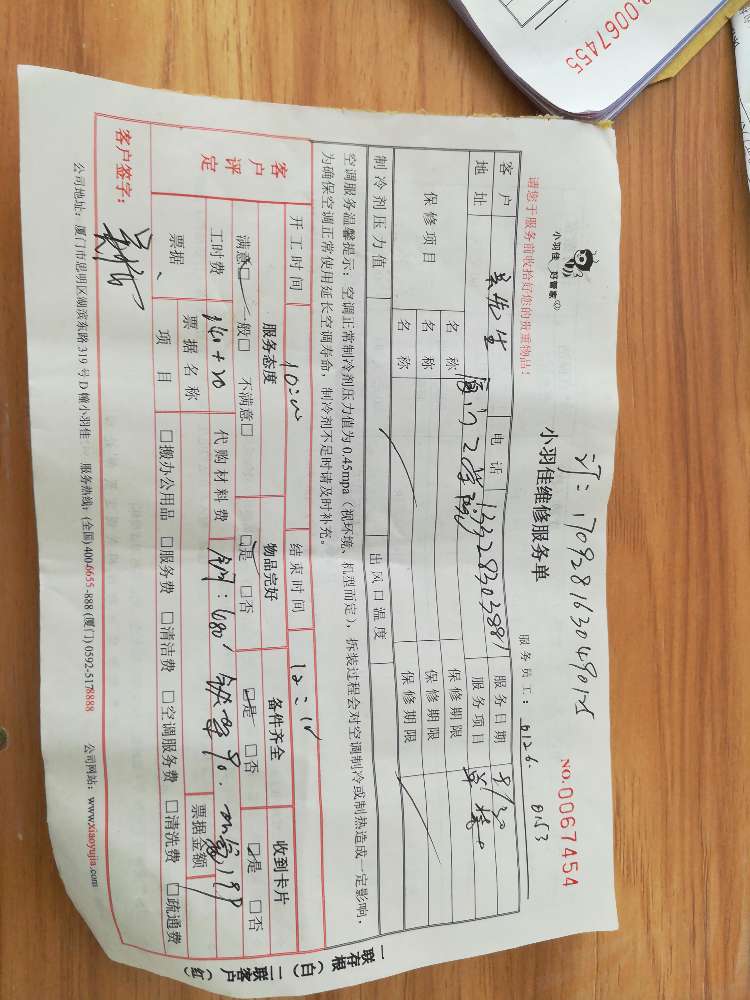 0067455
小羽佳 好管家
订:1709281630490125
小羽佳维修服务单
NO.0067454
请您于服务前收拾好您的贵重物品!
服务员工: 0126. 0153
客户 吴先生 电话 13328303889 服务日期 9/30
地址 厦门工学院 服务项目
保修项目 名称 保修期限
名称 保修期限
名称 保修期限
制冷剂压力值 出风口温度
空调服务温馨提示:空调正常制冷剂压力值为0.45mpa(视环境、机型而定),拆装过程会对空调制冷或制热造成一定影响,
为确保空调正常使用延长空调寿命,制冷剂不足时请及时补充。
客户评定
开工时间 10:00 结束时间 12:10
服务态度 物品完好 备件齐全 收到卡片
满意□ 一般□ 不满意□ □是 □否 □是 □否 □是 □否
工时费 140+20 代购材料费
票据 票据名称 票据金额
项目 □搬办公用品 □服务费 □清洁费 □空调服务费 □清洗费 □疏通费
客户签字:
公司地址:厦门市思明区湖滨东路319号D幢小羽佳 服务热线:(全国)400-6655-888 (厦门)0592-5178888 公司网站:www.xiaoyujia.com
一联存根(白) 二联客户(红)